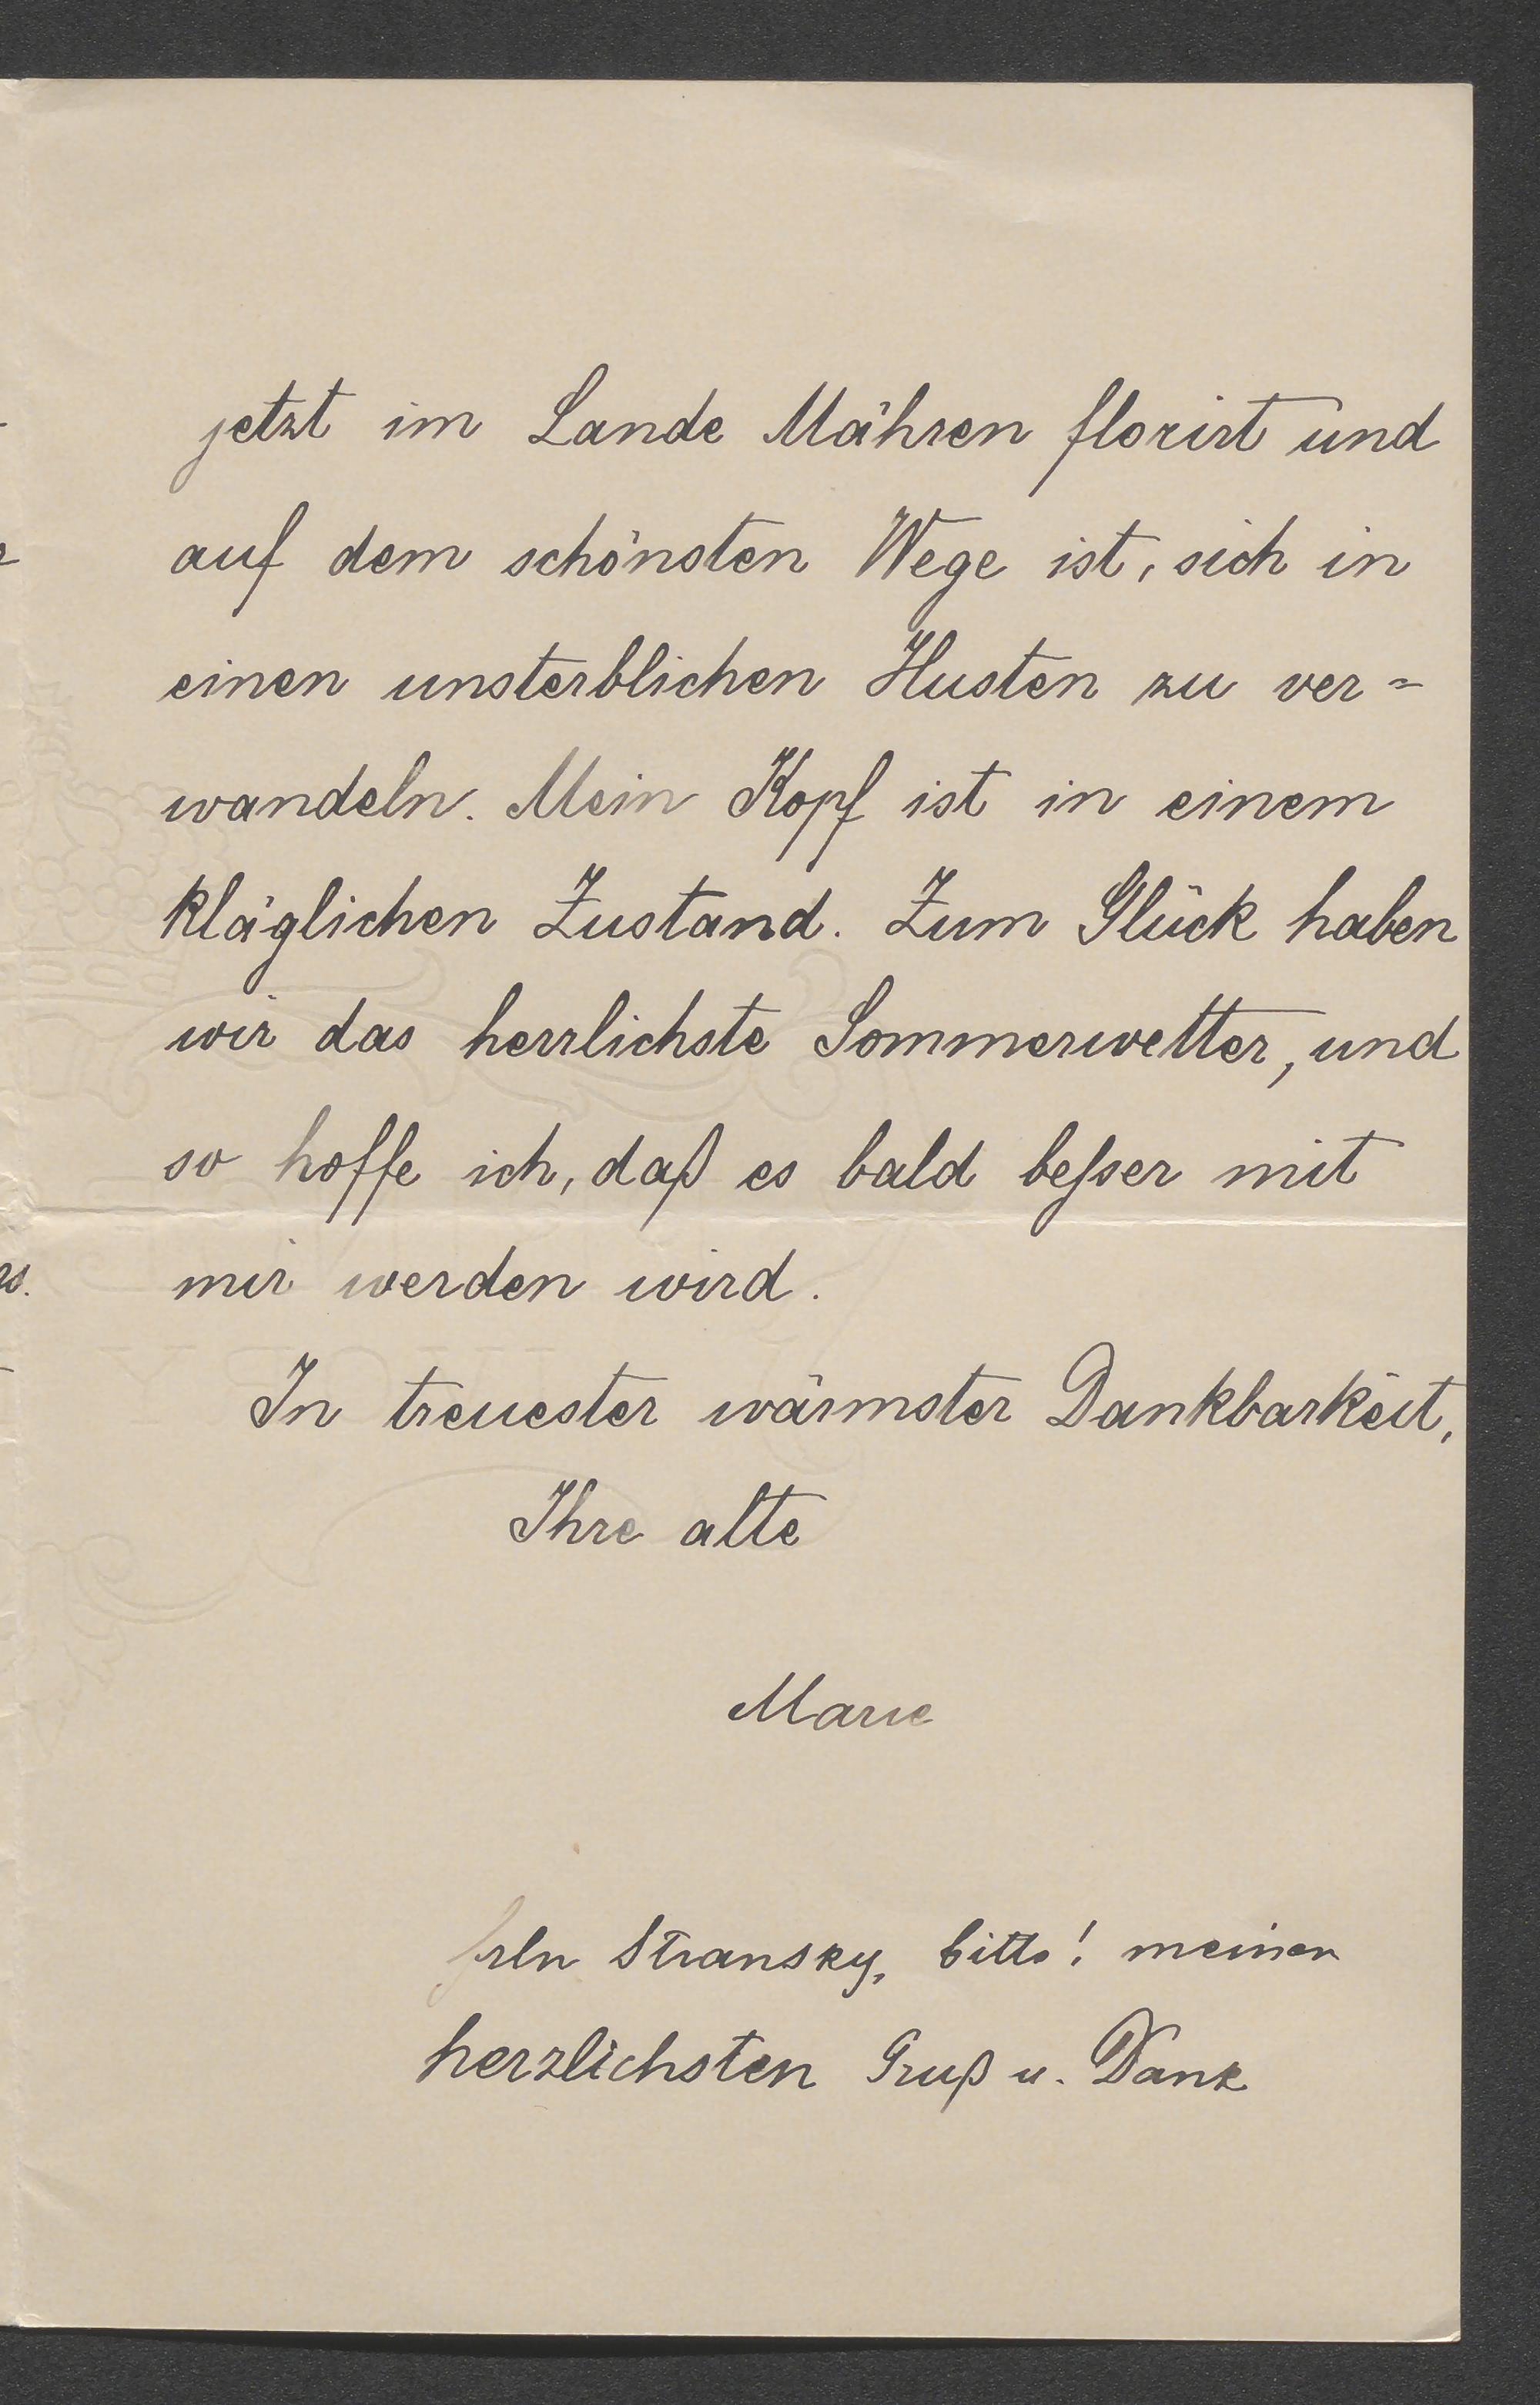 jetzt im Lande Mähren florirt und
auf dem schönsten Wege ist, sich in
einen unsterblichen Husten zu ver=
wandeln. Mein Kopf ist in einem
kläglichen Zustand. Zum Glück haben
wir das herrlichste Sommerwetter, und
so hoffe ich, daß es bald beſser mit
mir werden wird.
In treuester wärmster Dankbarkeit,
Ihre alte
Marie
frln Stransky, bitte! meinen
herzlichsten Gruß u. Dank